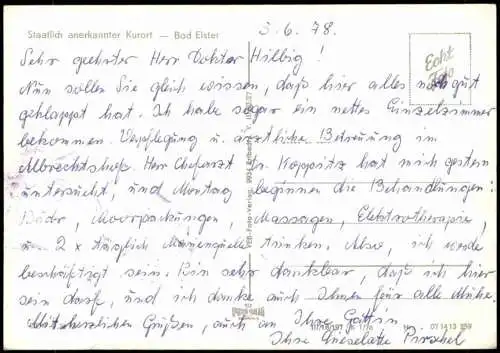 Staatlich anerkannter Kurort — Bad Elster
3.6.78.
Sehr geehrter Herr Doktor Hilbig!
Echt Foto
Nun sollen Sie gleich wissen, daß hier alles noch gut
geklappt hat. Ich habe sogar ein nettes Einzelzimmer
bekommen. Verpflegung u. ärztliche Betreuung im
Albrechtshof. Herr Chefarzt Dr. Koppitz hat mich gestern
untersucht, und Montag beginnen die Behandlungen:
Bäder, Moorpackungen, Massagen, Elektrotherapie,
u. 2 x täglich Marienquelle trinken. Also, ich werde
beschäftigt sein. Bin sehr dankbar, daß ich hier
sein darf, und ich danke auch Ihnen für alle Mühe.
Mit herzlichen Grüßen, auch an Ihre Gattin
Ihre Annelotte
VEB Foto-Verlag
01 14 13 259